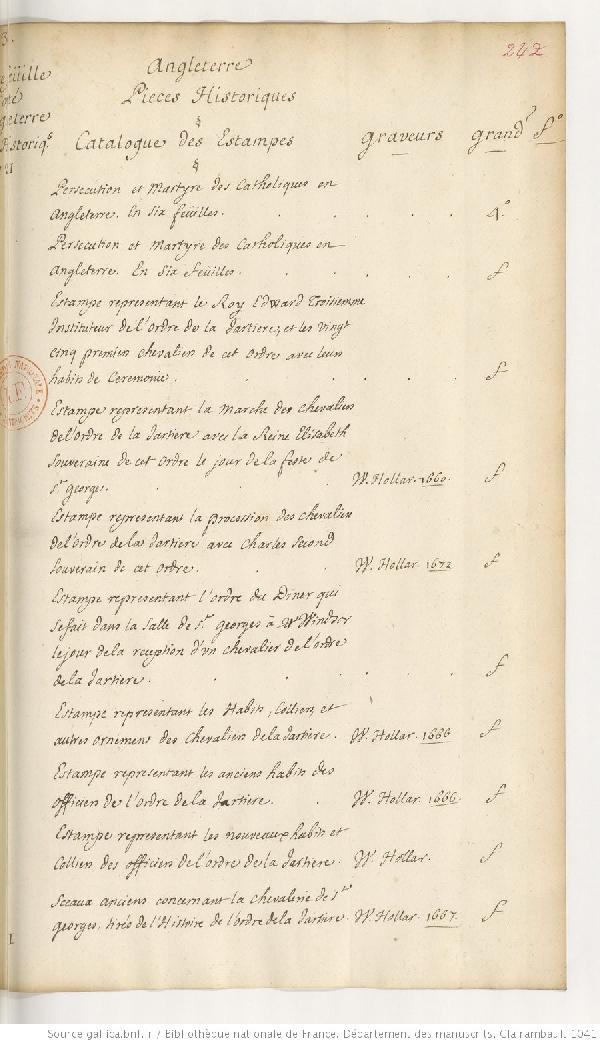 242
Angleterre
Pieces Historiques
Catalogue des Estampes graveurs grandr fo
Persecution et Martyre des Catholiques en
Angleterre. En six feüilles. 4o
Persecution et Martyre des Catholiques en
Angleterre. En Six feuilles. f
Estampe representant le Roy Edward Troisiemme
Instituteur de l'ordre de la Jartiere, et les vingt
cinq premiers chevaliers de cet ordre avec leurs
habits de Ceremonie. f
Estampe representant la Marche des chevaliers
de l'ordre de la Jartiere avec la Reine Elisabeth
Souveraine de cet ordre le jour de la feste de
St georges. W. Hollar. 1660. f
Estampe representant la procession des chevaliers
de l'ordre de la Jartiere avec Charles Second
Souverain de cet ordre. W. Hollar 1672 f
Estampe representant l'ordre du Diner qui
se fait dans la Salle de St georges à Windsor
le jour de la reception d'un chevalier de l'ordre
de la Jartiere. f
Estampe representant les Habits, Colliers, et
autres ornemens des chevaliers de la Jartiere. W. Hollar. 1666 f
Estampe representant les anciens habits des
officiers de l'ordre de la Jartiere. W. Hollar. 1666 f
Estampe representant les nouveaux habits et
Colliers des officiers de l'ordre de la Jartiere. W. Hollar. f
Sceaux anciens concernant la chevalerie de St
georges, tirés de l'Histoire de l'ordre de la Jartiere. W. Hollar. 1667. f
Source gallica.bnf.fr / Bibliothèque nationale de France. Département des manuscrits. Clairambault 1041